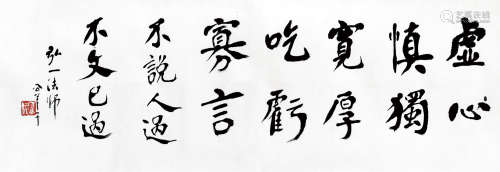 虛心
慎獨
寬厚
吃虧
寡言
不說人過
不文己過
弘一法師